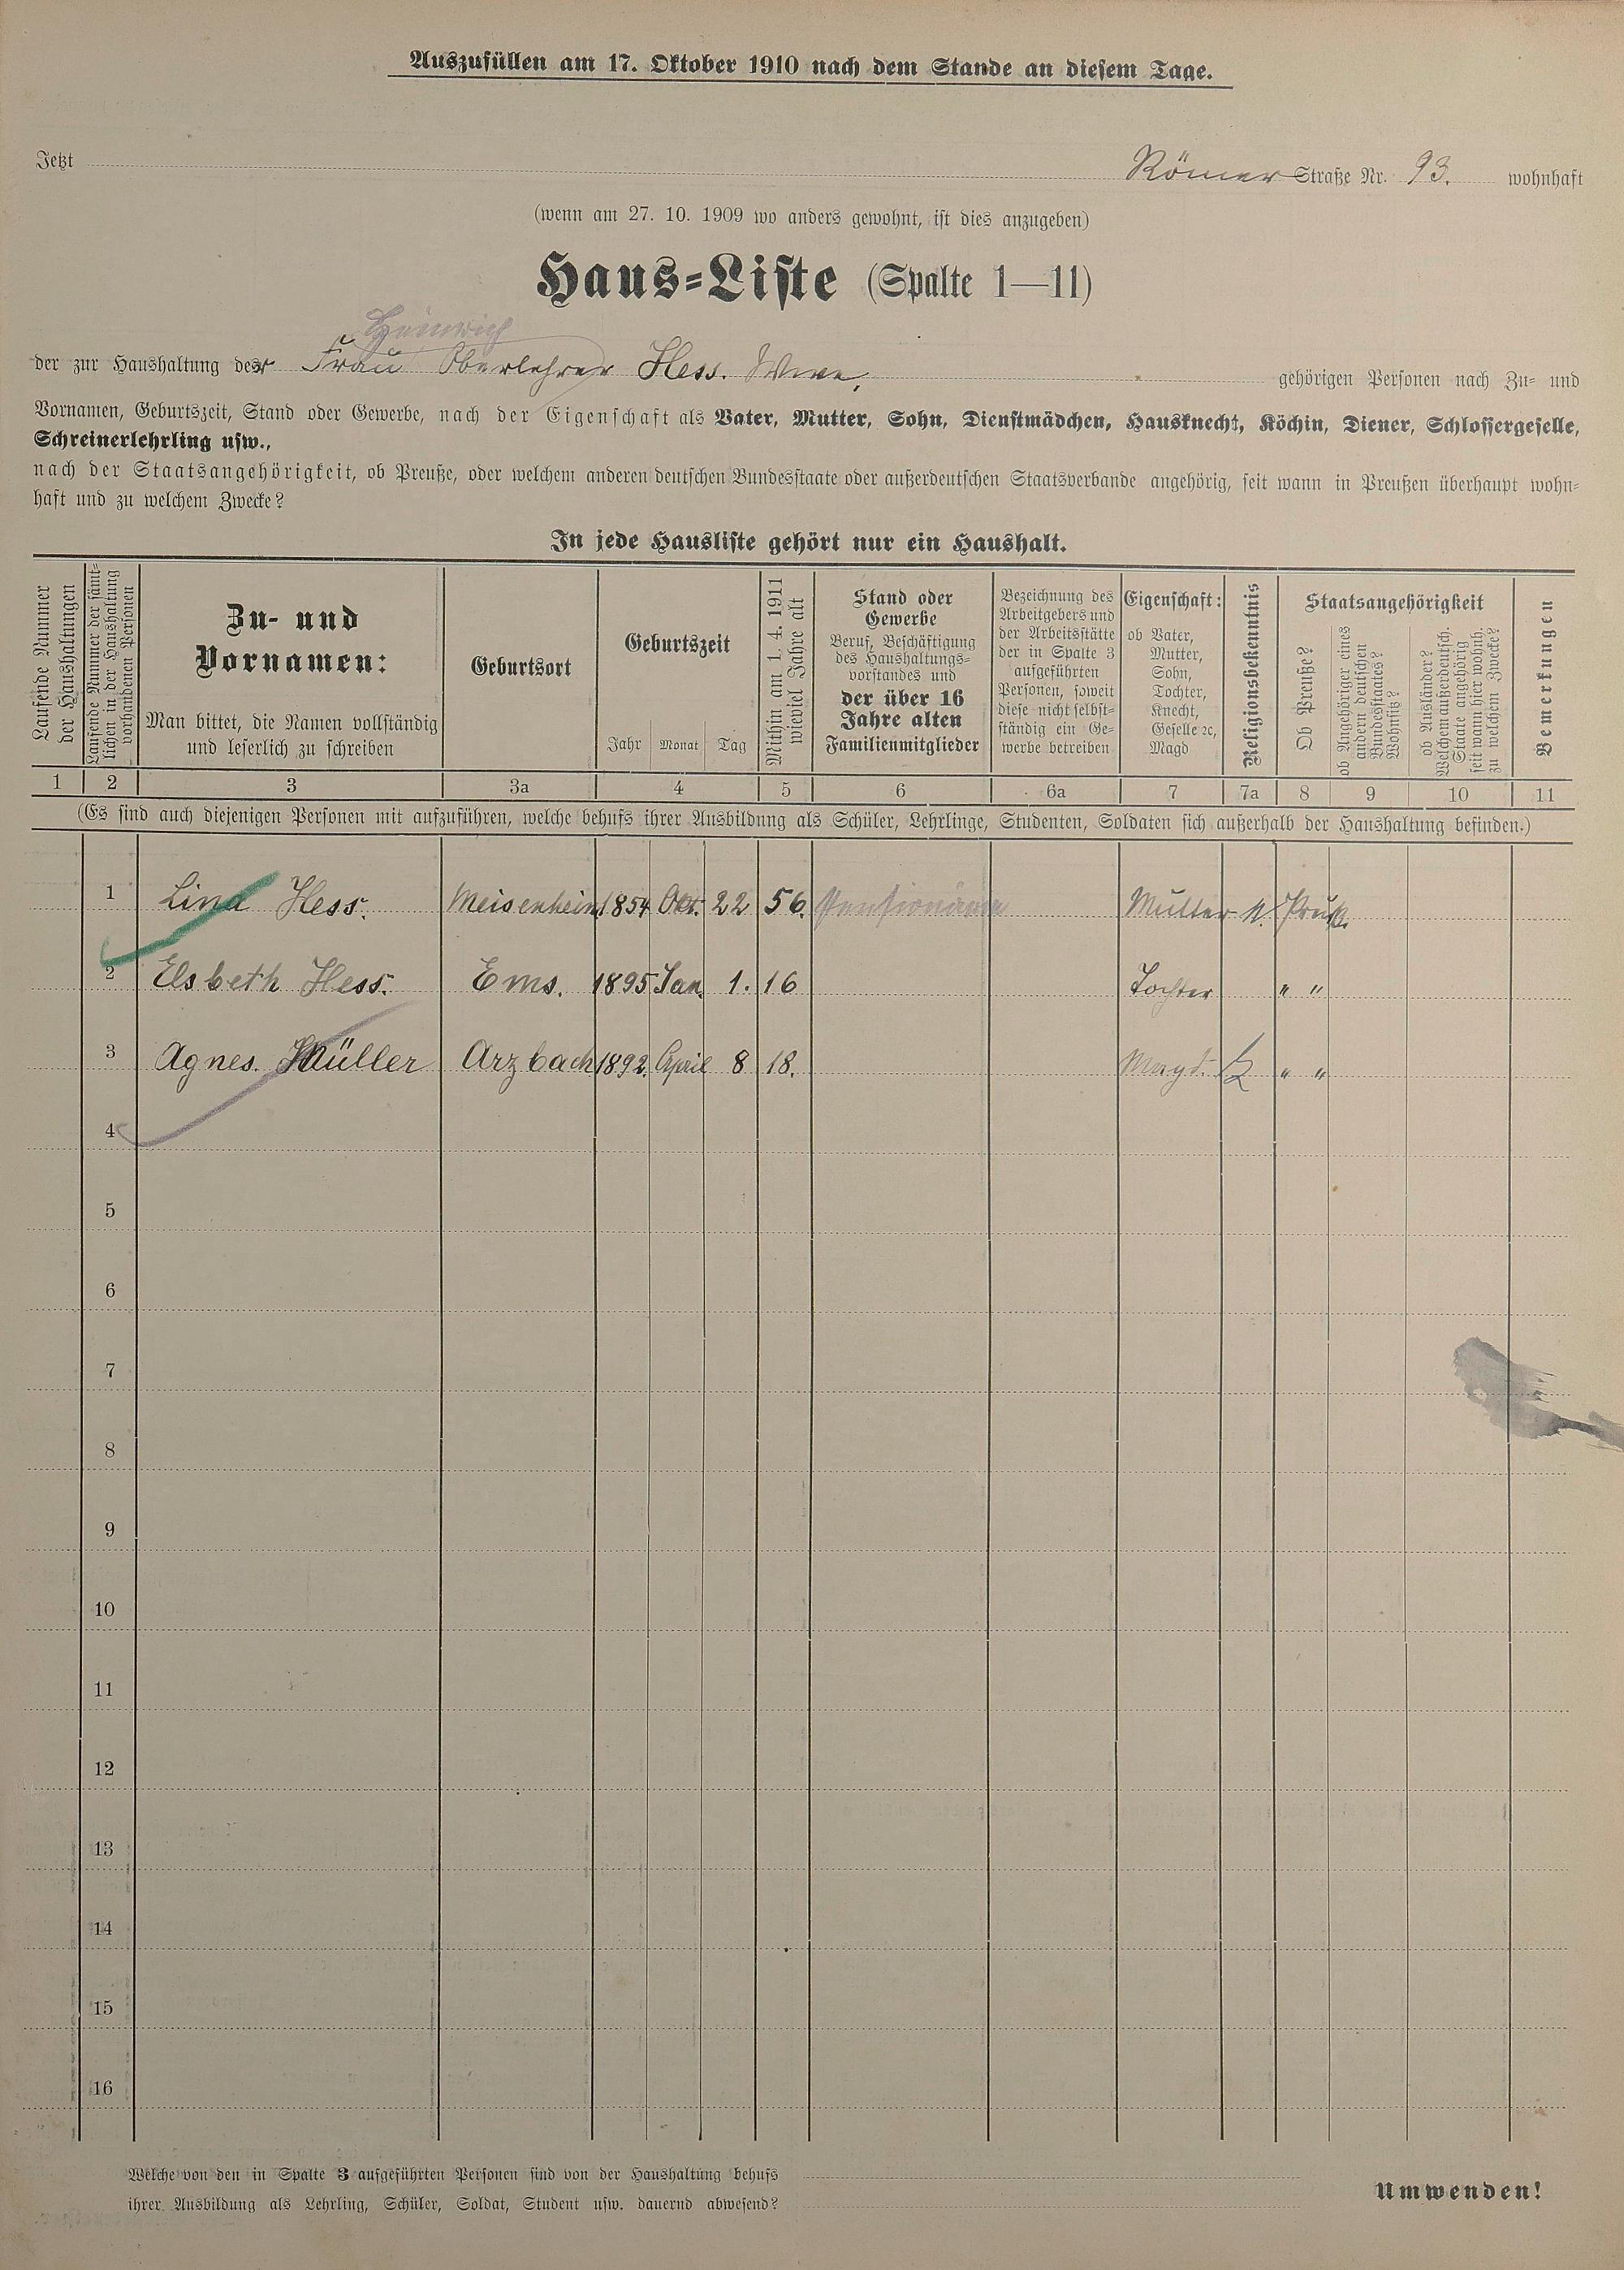 Auszufüllen am 17. Oktober 1910 nach dem Stande an diesem Tage.
Jetzt Römer Straße Nr. 93. wohnhaft
(wenn am 27. 10. 1909 wo anders gewohnt, ist dies anzugeben)
Haus-Liste (Spalte 1—11)
Heinrich
der zur Haushaltung der Frau Oberlehrer Hess. Wwe, gehörigen Personen nach Zu- und
Vornamen, Geburtszeit, Stand oder Gewerbe, nach der Eigenschaft als Vater, Mutter, Sohn, Dienstmädchen, Hausknecht, Köchin, Diener, Schlossergeselle,
Schreinerlehrling usw.,
nach der Staatsangehörigkeit, ob Preuße, oder welchem anderen deutschen Bundesstaate oder außerdeutschen Staatsverbande angehörig, seit wann in Preußen überhaupt wohn-
haft und zu welchem Zwecke?
In jede Hausliste gehört nur ein Haushalt.
Laufende Nummer
der Haushaltungen
Laufende Nummer der sämt-
lichen in der Haushaltung
vorhandenen Personen
Zu- und
Vornamen:
Man bittet, die Namen vollständig
und leserlich zu schreiben
Geburtsort
Geburtszeit
Jahr Monat Tag
Mithin am 1. 4. 1911
wieviel Jahre alt
Stand oder
Gewerbe
Beruf, Beschäftigung
des Haushaltungs-
vorstandes und
der über 16
Jahre alten
Familienmitglieder
Bezeichnung des
Arbeitgebers und
der Arbeitsstätte
der in Spalte 3
aufgeführten
Personen, soweit
diese nicht selbst-
ständig ein Ge-
werbe betreiben
Eigenschaft:
ob Vater,
Mutter,
Sohn,
Tochter,
Knecht,
Geselle ꝛc,
Magd
Religionsbekenntnis
Staatsangehörigkeit
Ob Preuße?
ob Angehöriger eines
andern deutschen
Bundesstaates?
Wohnsitz?
ob Ausländer?
Welchem außerdeutsch.
Staate angehörig
seit wann hier wohnh.
zu welchem Zwecke?
Bemerkungen
1 2 3 3a 4 5 6 6a 7 7a 8 9 10 11
(Es sind auch diejenigen Personen mit aufzuführen, welche behufs ihrer Ausbildung als Schüler, Lehrlinge, Studenten, Soldaten sich außerhalb der Haushaltung befinden.)
1 Lina Hess. Meisenheim 1854 Okt. 22 56. Pensionärin Mutter Preuß.
2 Elsbeth Hess. Ems. 1895 Jan. 1. 16 Tochter " "
3 Agnes. Müller Arzbach 1892. April 8 18. Magd. " "
4
5
6
7
8
9
10
11
12
13
14
15
16
Welche von den in Spalte 3 aufgeführten Personen sind von der Haushaltung behufs
ihrer Ausbildung als Lehrling, Schüler, Soldat, Student usw. dauernd abwesend?
Umwenden!